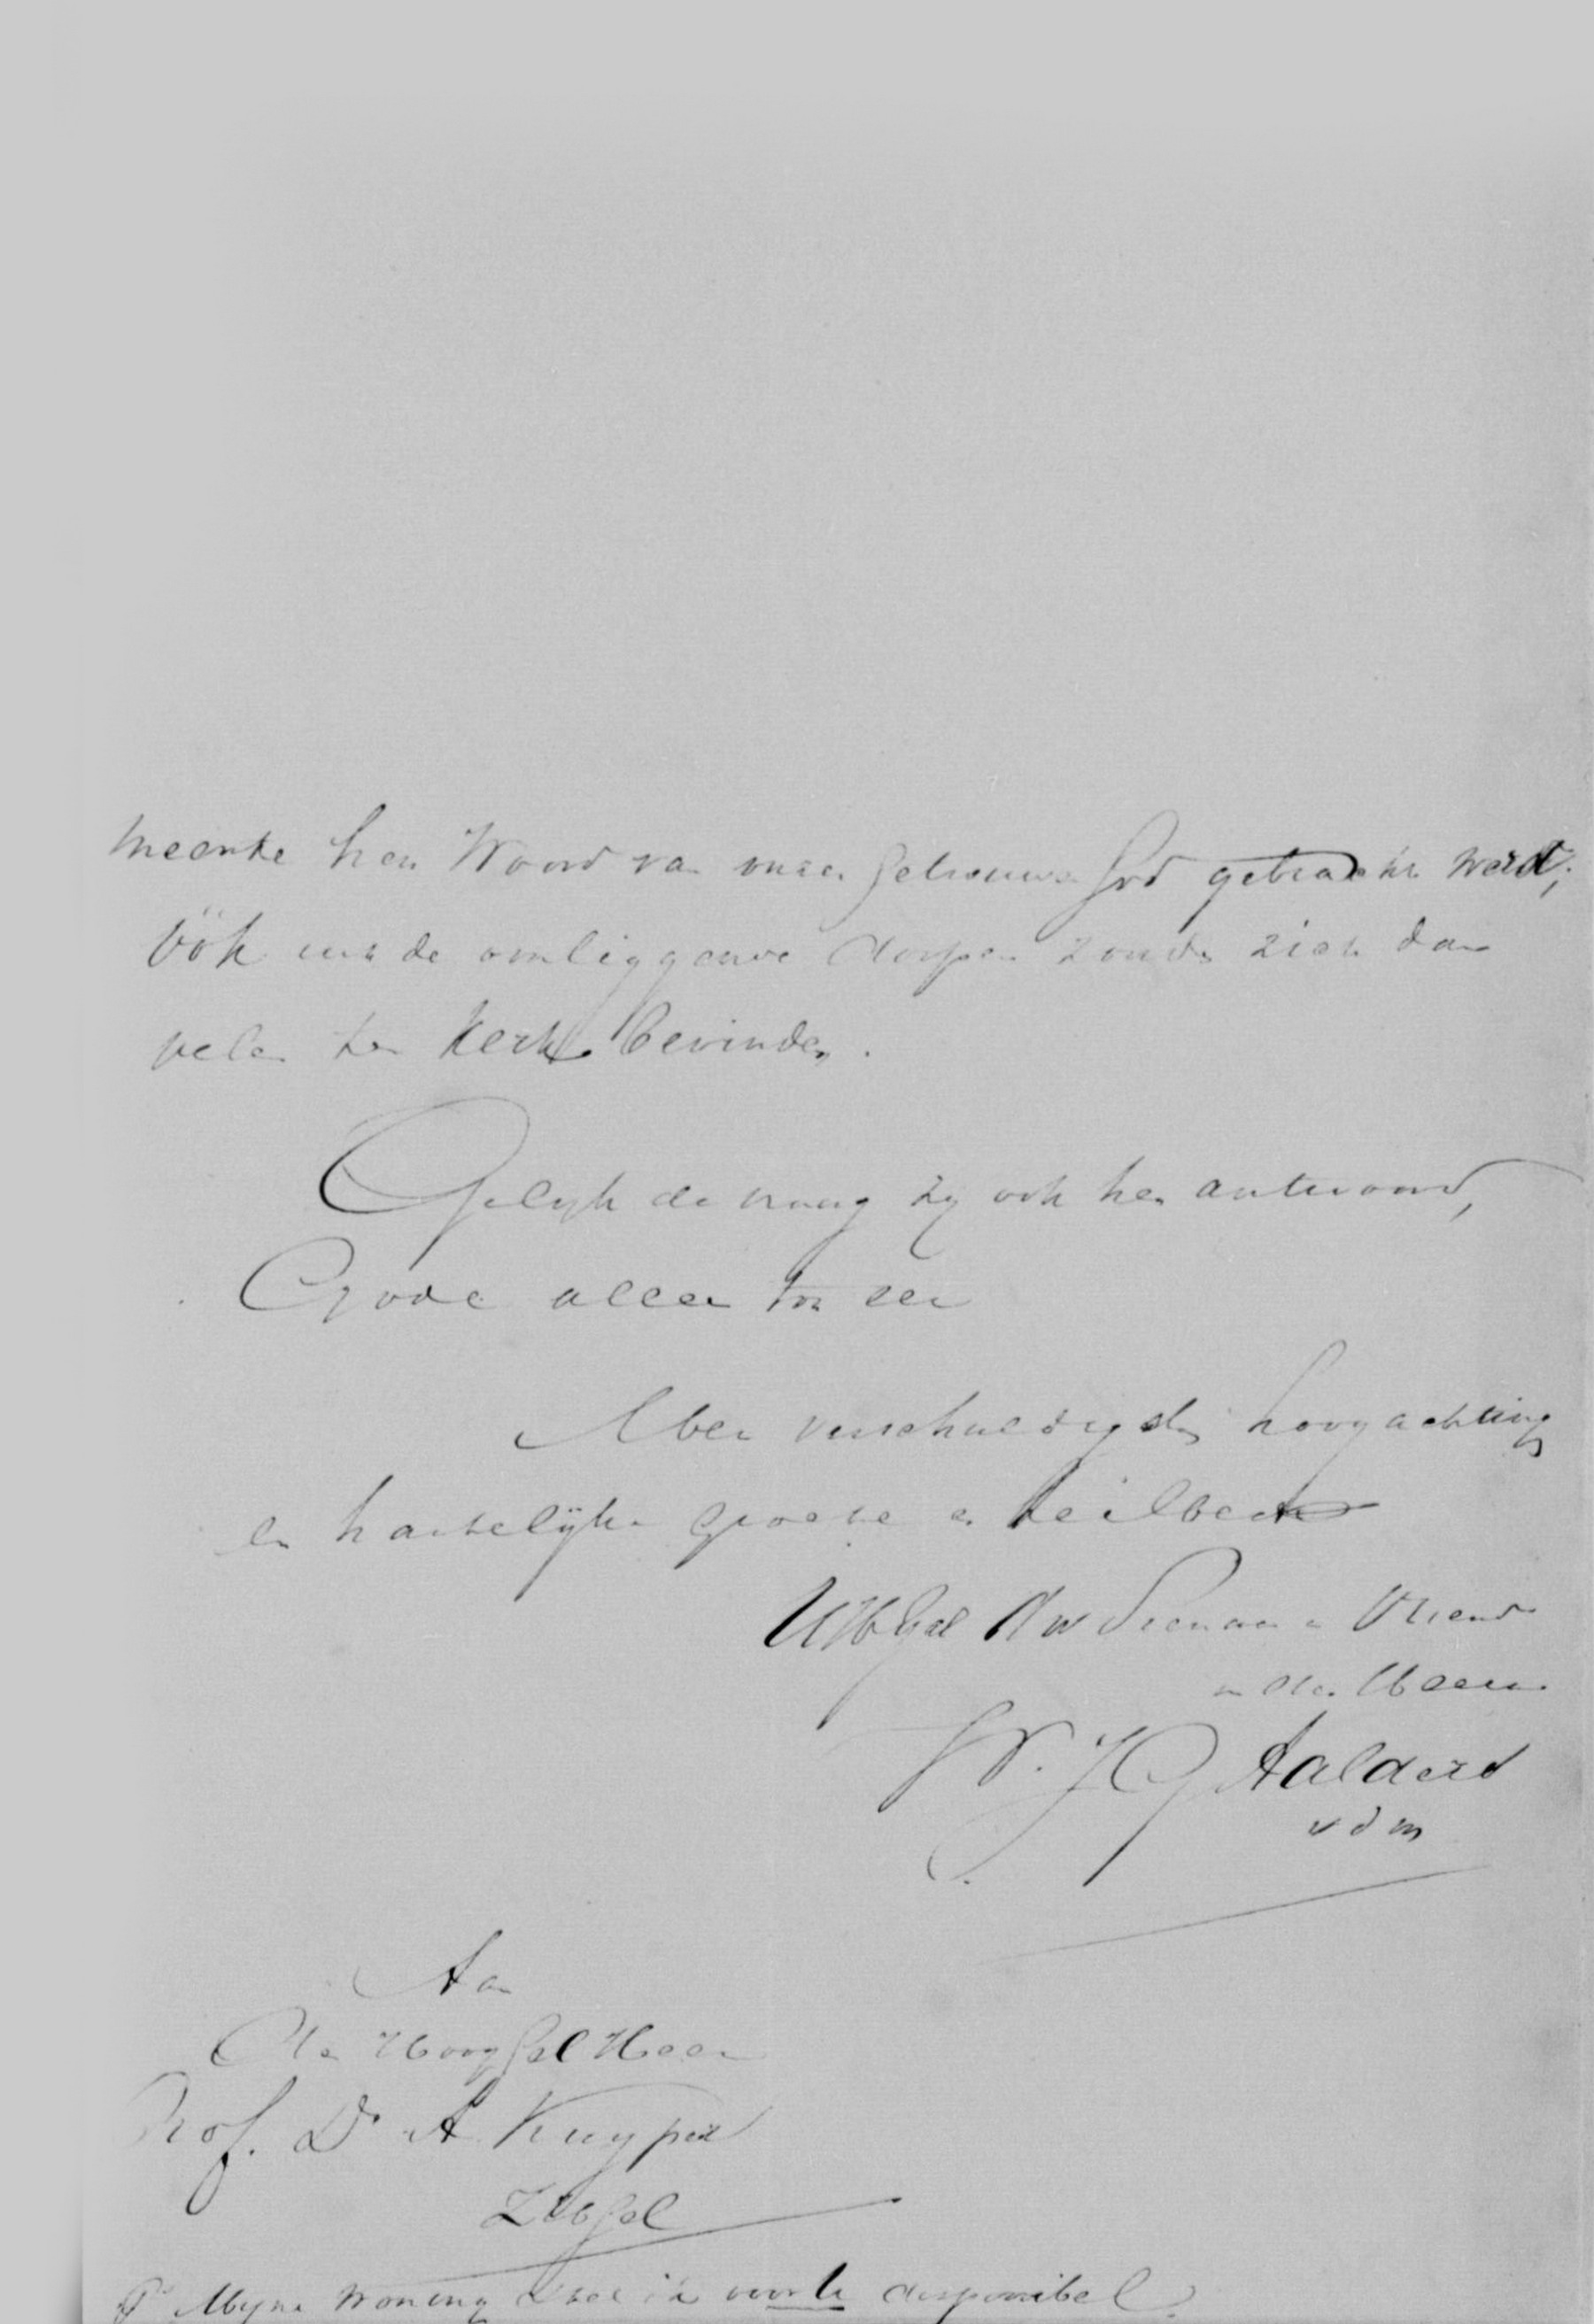 meente het Woord van onzen getrouwen God gebracht werd;
óók uit de omliggende dorpen zouden zich dan
velen ter Kerke bevinden.
Gelijk de vraag zij ook het antwoord,
Gode alleen tot eer
Met verschuldigde hoogachting
en hartelijke groete en heilbede
UHGel dw Dienaar en Vriend
in den Heere
W. J G Aalders
v d m
Aan
den HoogGel Heer
Prof. Dr A Kuyper
ZHGel
PS Mijne woning stel ik voor U disponibel.